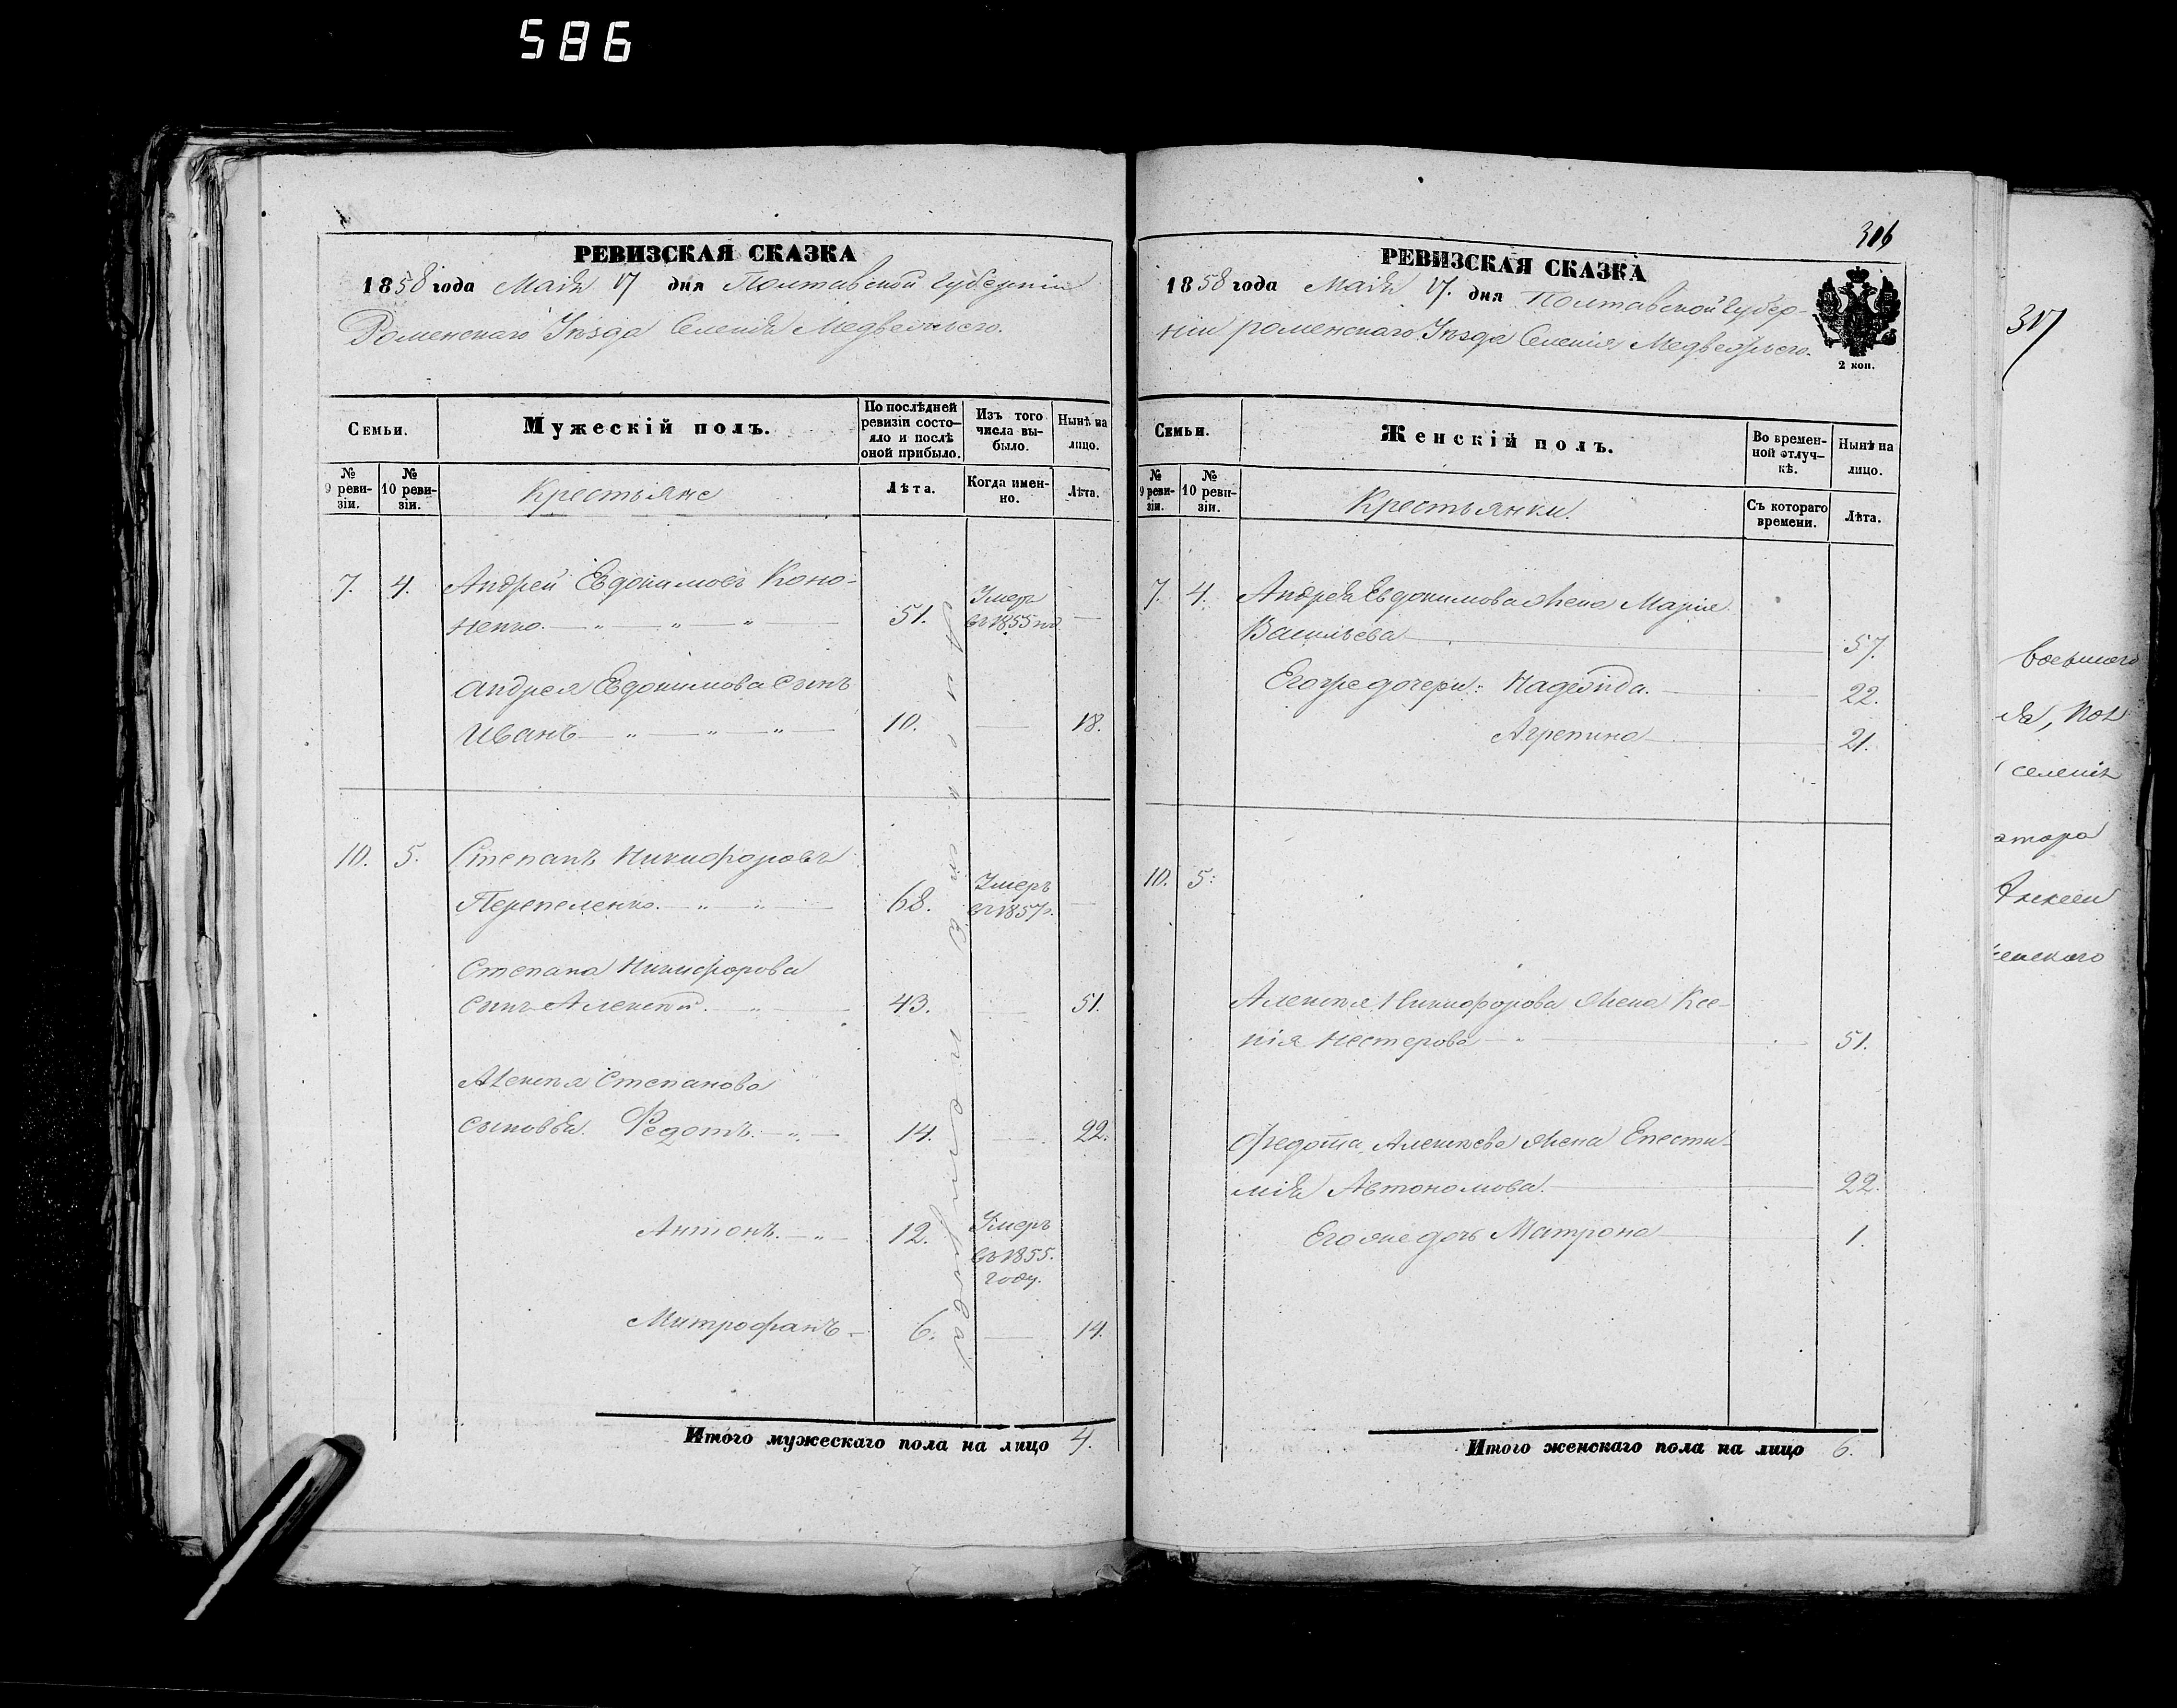 586
РЕВИЗСКАЯ СКАЗКА
1858 года Маія 17 дня Полтавской Губерніи
Роменскаго Уѣзда Селенія Медвежьего.
Семьи.
Мужескій полъ.
По послѣдней ревизіи состояло и послѣ оной прибыло.
Изъ того числа выбыло.
Нынѣ на лицо.
№ 9 ревизіи.
№ 10 ревизіи.
Крестьяне
Лѣта.
Когда именно.
Лѣта.
7. 4. Андрей Евдокимовъ Коно-
ненко. — „ — „ — „ — 51. Умеръ въ 1855 —
Андрея Евдокимова сынъ
Иванъ — „ — „ — „ — 10. — 18.
10. 5. Степанъ Никифоровъ
Перепеленко. — „ — „ — 68. Умеръ въ 1857г. —
Степана Никифорова
сынъ Алексѣй. — „ — 43. — 51.
Алексѣя Степанова
сыновья. Федотъ. — „ — 14. — 22.
Антонъ. — „ — 12. Умеръ въ 1855. году.
Митрофанъ — 6. — 14.
Итого мужескаго пола на лицо 4.
316
РЕВИЗСКАЯ СКАЗКА
1858 года Маія 17. дня Полтавской Губер-
ніи роменскаго Уѣзда Селенія Медвежьего.
2 коп.
Семьи.
Женскій полъ.
Во временной отлучкѣ.
Нынѣ на лицо.
№ 9 ревизіи.
№ 10 ревизіи.
Крестьянки.
Съ котораго времени.
Лѣта.
7. 4. Андрея Евдокимова жена Марія
Васильева — 57.
Егоже дочери: Надежда. — 22.
Агрепина — 21.
10. 5:
Алексѣя Никифорова жена Ксе-
нія Нестерова — „ — 51.
Федота Алексѣева жена Епести-
мія Автономова. — 22.
Егоже дочь Матрона — 1.
Итого женскаго пола на лицо 6.
317
селенія